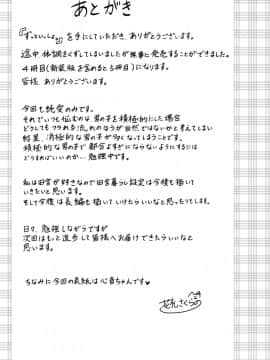 あとがき
『ずっといっしょ』を手にしていただき ありがとうございます。
途中 体調をくずしてしまいましたが無事に発売することができました。
4冊目(新装版を含めると5冊目)になります。
皆様 ありがとうございます。
今回も純愛のみです。
それでいつも悩むのは 男の子を積極的にした場合
どうしても フラれる流れのほうが自然ではないかと考えてしまい
結果、消極的な男の子が多くなってしまうことです。
積極的な男の子で都合よすぎにならないようにするには
どうすればいいのか… 勉強中です。
私は田舎が好きなので田舎暮らし設定は今後も描いて
いきたいと思います。
そして今後は長編も描いていけたらいいなと思ったりしてます。
日々、勉強しながらですが
次回はもっと進歩して皆様へお届けできたらいいなと
思います。
ちなみに今回の表紙は心音ちゃんです♥